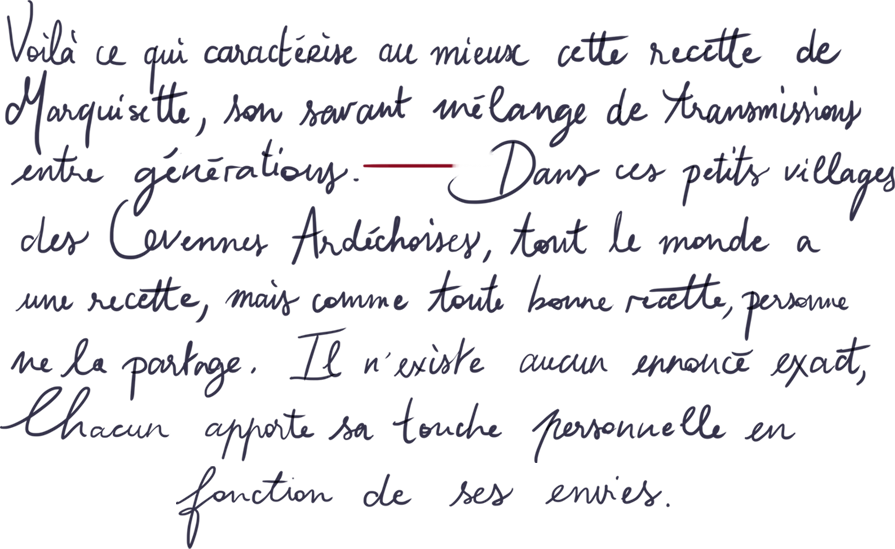 Voilà ce qui caractérise au mieux cette recette de
Marquisette, son savant mélange de transmissions
entre générations. Dans ces petits villages
des Cévennes Ardéchoises, tout le monde a
une recette, mais comme toute bonne recette, personne
ne la partage. Il n'existe aucun ennoncé exact,
Chacun apporte sa touche personnelle en
fonction de ses envies.